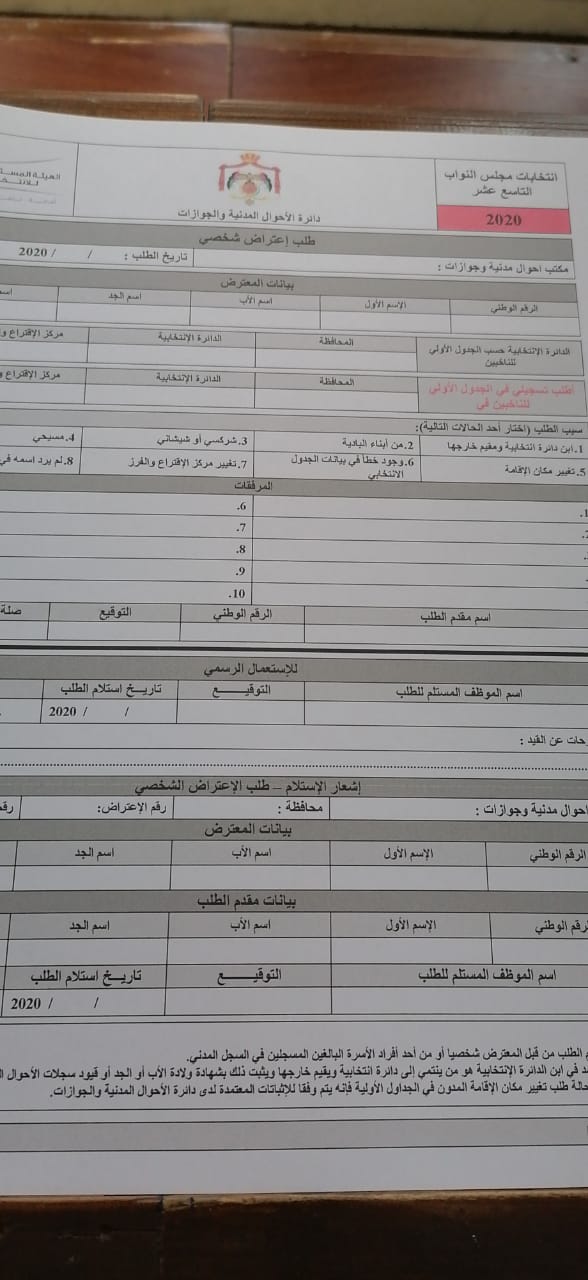 انتخابات مجلس النواب
التاسع عشر
2020
دائرة الأحوال المدنية والجوازات
الهيئة
طلب إعتراض شخصي
مكتب احوال مدنية وجوازات : تاريخ الطلب : / / 2020
بيانات المعترض
الرقم الوطني الإسم الأول اسم الأب اسم الجد
الدائرة الإنتخابية حسب الجدول الأولي للناخبين المحافظة الدائرة الإنتخابية مركز الإقتراع
أطلب تسجيلي في الجدول الأولي للناخبين في المحافظة الدائرة الإنتخابية مركز الإقتراع
سبب الطلب (اختار أحد الحالات التالية):
1.ابن دائرة انتخابية ومقيم خارجها 2.من أبناء البادية 3.شركسي أو شيشاني 4.مسيحي
5.تغيير مكان الإقامة 6.وجود خطأ في بيانات الجدول الانتخابي 7.تغيير مركز الإقتراع والفرز 8.لم يرد اسمه في
المرفقات
6.
7.
8.
9.
10.
اسم مقدم الطلب الرقم الوطني التوقيع صلة
للإستعمال الرسمي
اسم الموظف المستلم للطلب التوقيــــــع تاريــخ استلام الطلب
/ / 2020
عن القيد :
إشعار الإستلام – طلب الإعتراض الشخصي
احوال مدنية وجوازات : محافظة : رقم الإعتراض:
بيانات المعترض
الرقم الوطني الإسم الأول اسم الأب اسم الجد
بيانات مقدم الطلب
الرقم الوطني الإسم الأول اسم الأب اسم الجد
اسم الموظف المستلم للطلب التوقيــــــع تاريــخ استلام الطلب
/ / 2020
الطلب من قبل المعترض شخصيا أو من أحد أفراد الأسرة البالغين المسجلين في السجل المدني.
في ابن الدائرة الإنتخابية هو من ينتمي إلى دائرة انتخابية ويقيم خارجها ويثبت ذلك بشهادة ولادة الأب أو الجد أو قيود سجلات الأحوال
حالة طلب تغيير مكان الإقامة المدون في الجداول الأولية فإنه يتم وفقا للإثباتات المعتمدة لدى دائرة الأحوال المدنية والجوازات.